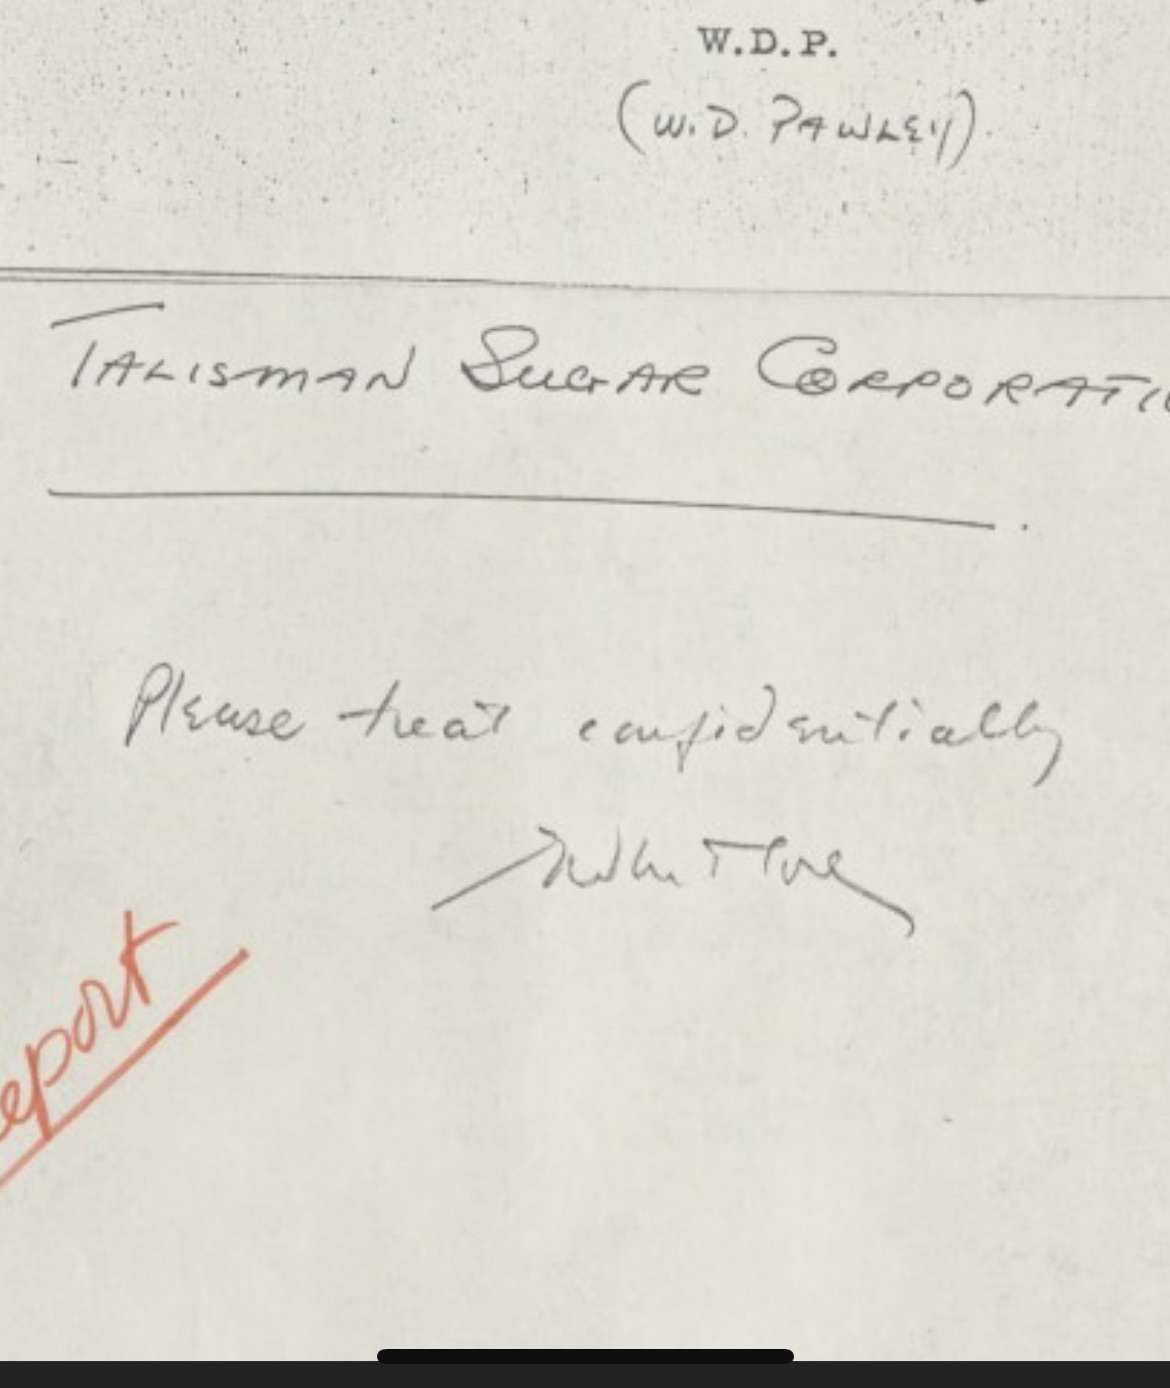 W.D.P.
(W.D. PAWLEY)
TALISMAN SUGAR CORPORATIO
Please treat confidentially
eport